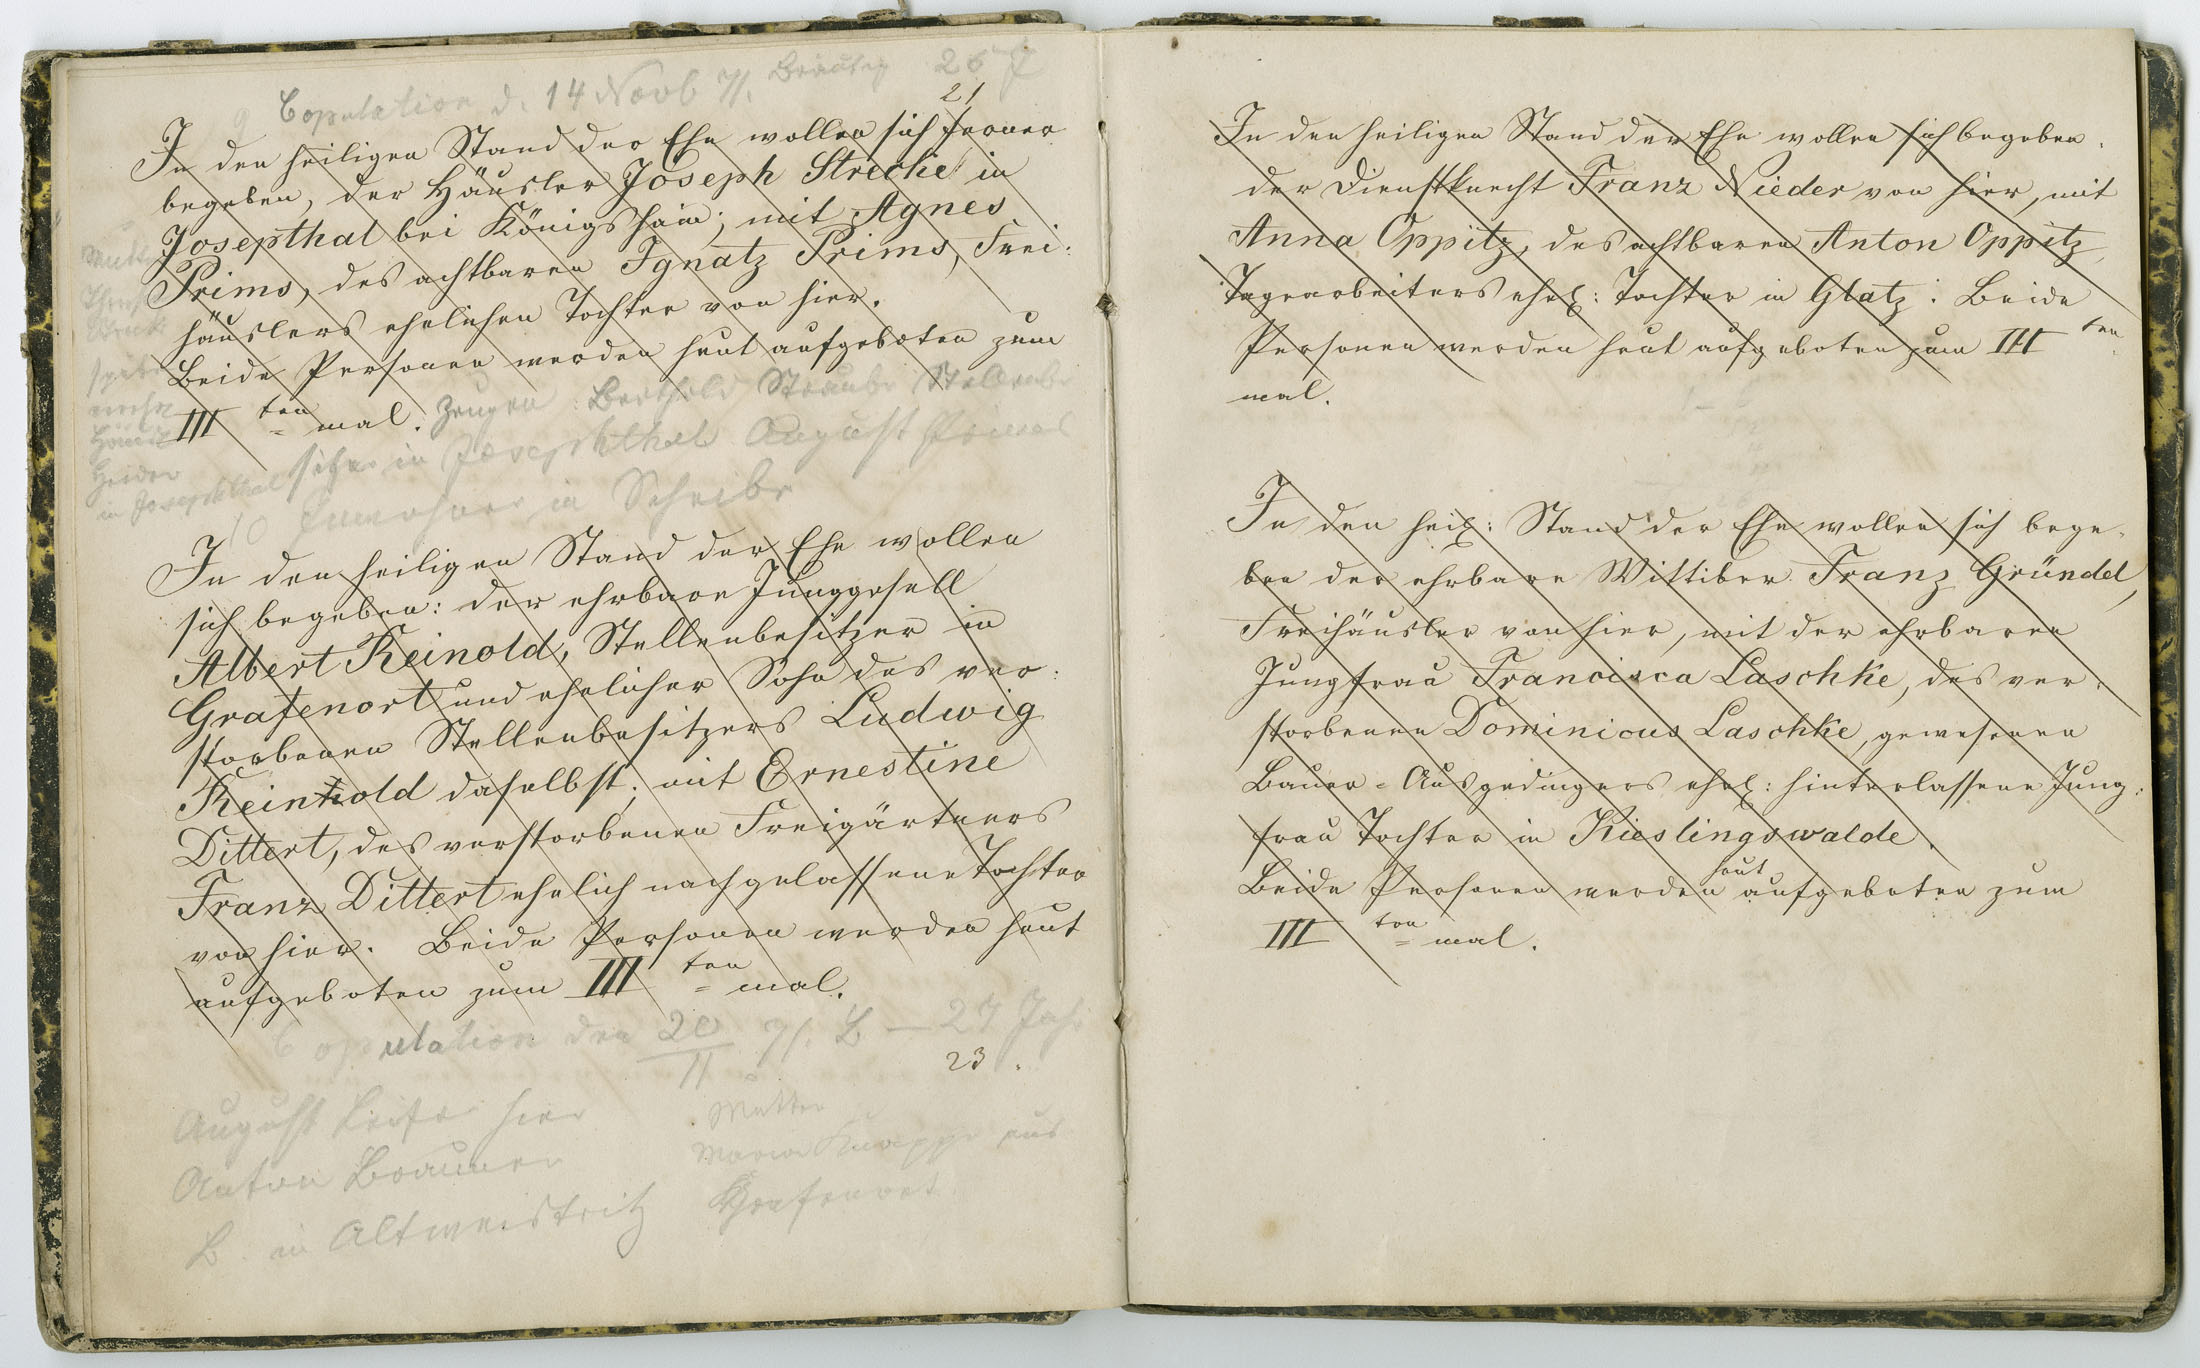 9 Copulation d. 14 Novb Bräutig 26 J
21
In den heiligen Stand der Ehe wollen sich ferner
begeben, der Häusler Joseph Strecke in
Josepthal bei Königshain; mit Agnes
Prims, des achtbaren Ignatz Prims, Frei:
häuslers ehelichen Tochter von hier.
Beide Personen werden heut aufgeboten zum
III ten = mal. Zeugen Berthold Straube Stellenbe
sitzer in Josephthal August Prims
in Schreibe
Mutter
in Josephthal
10
In den heiligen Stand der Ehe wollen
sich begeben: der ehrbare Junggesell
Albert Reinold, Stellenbesitzer in
Grafenort und ehelicher Sohn des ver:
storbenen Stellenbesitzers Ludwig
Reinhold daselbst; mit Ernestine
Dittert, des verstorbenen Freigärtners
Franz Dittert ehelich nachgelassene Tochter
von hier. Beide Personen werden heut
aufgeboten zum III ten = mal.
Copulation den 20/11 B – 27 Jahr
23.
August hier
Anton Brauner
B. in Altweistritz
Mutter
Maria Knappe aus
Grafenort
In den heiligen Stand der Ehe wollen sich begeben
der Dienstknecht Franz Nieder von hier, mit
Anna Oppitz, des achtbaren Anton Oppitz,
Tagearbeiters ehel: Tochter in Glatz. Beide
Personen werden heut aufgeboten zum III ten =
mal.
In den heil: Stand der Ehe wollen sich bege-
ben der ehrbare Wittiber Franz Gründel,
Freihäusler von hier, mit der ehrbaren
Jungfrau Francisca Laschke, des ver:
storbenen Dominicus Laschke, gewesenen
Bauer-Ausgedingers ehel: hinterlassene Jung:
frau Tochter in Kieslingswalde.
Beide Personen werden heut aufgeboten zum
III ten = mal.